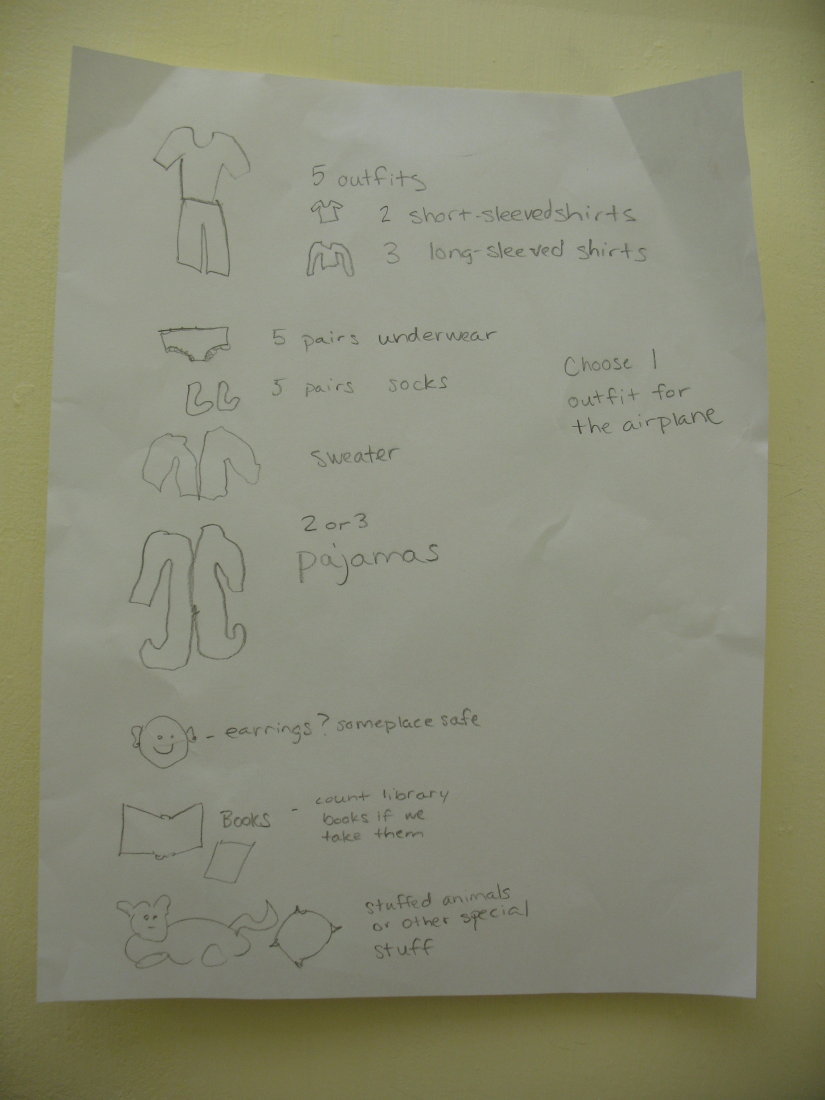 5 outfits
2 short-sleeved shirts
3 long-sleeved shirts
5 pairs underwear
5 pairs socks
Choose 1
outfit for
the airplane
sweater
2 or 3
pajamas
- earrings? someplace safe
Books - count library
books if we
take them
stuffed animals
or other special
stuff